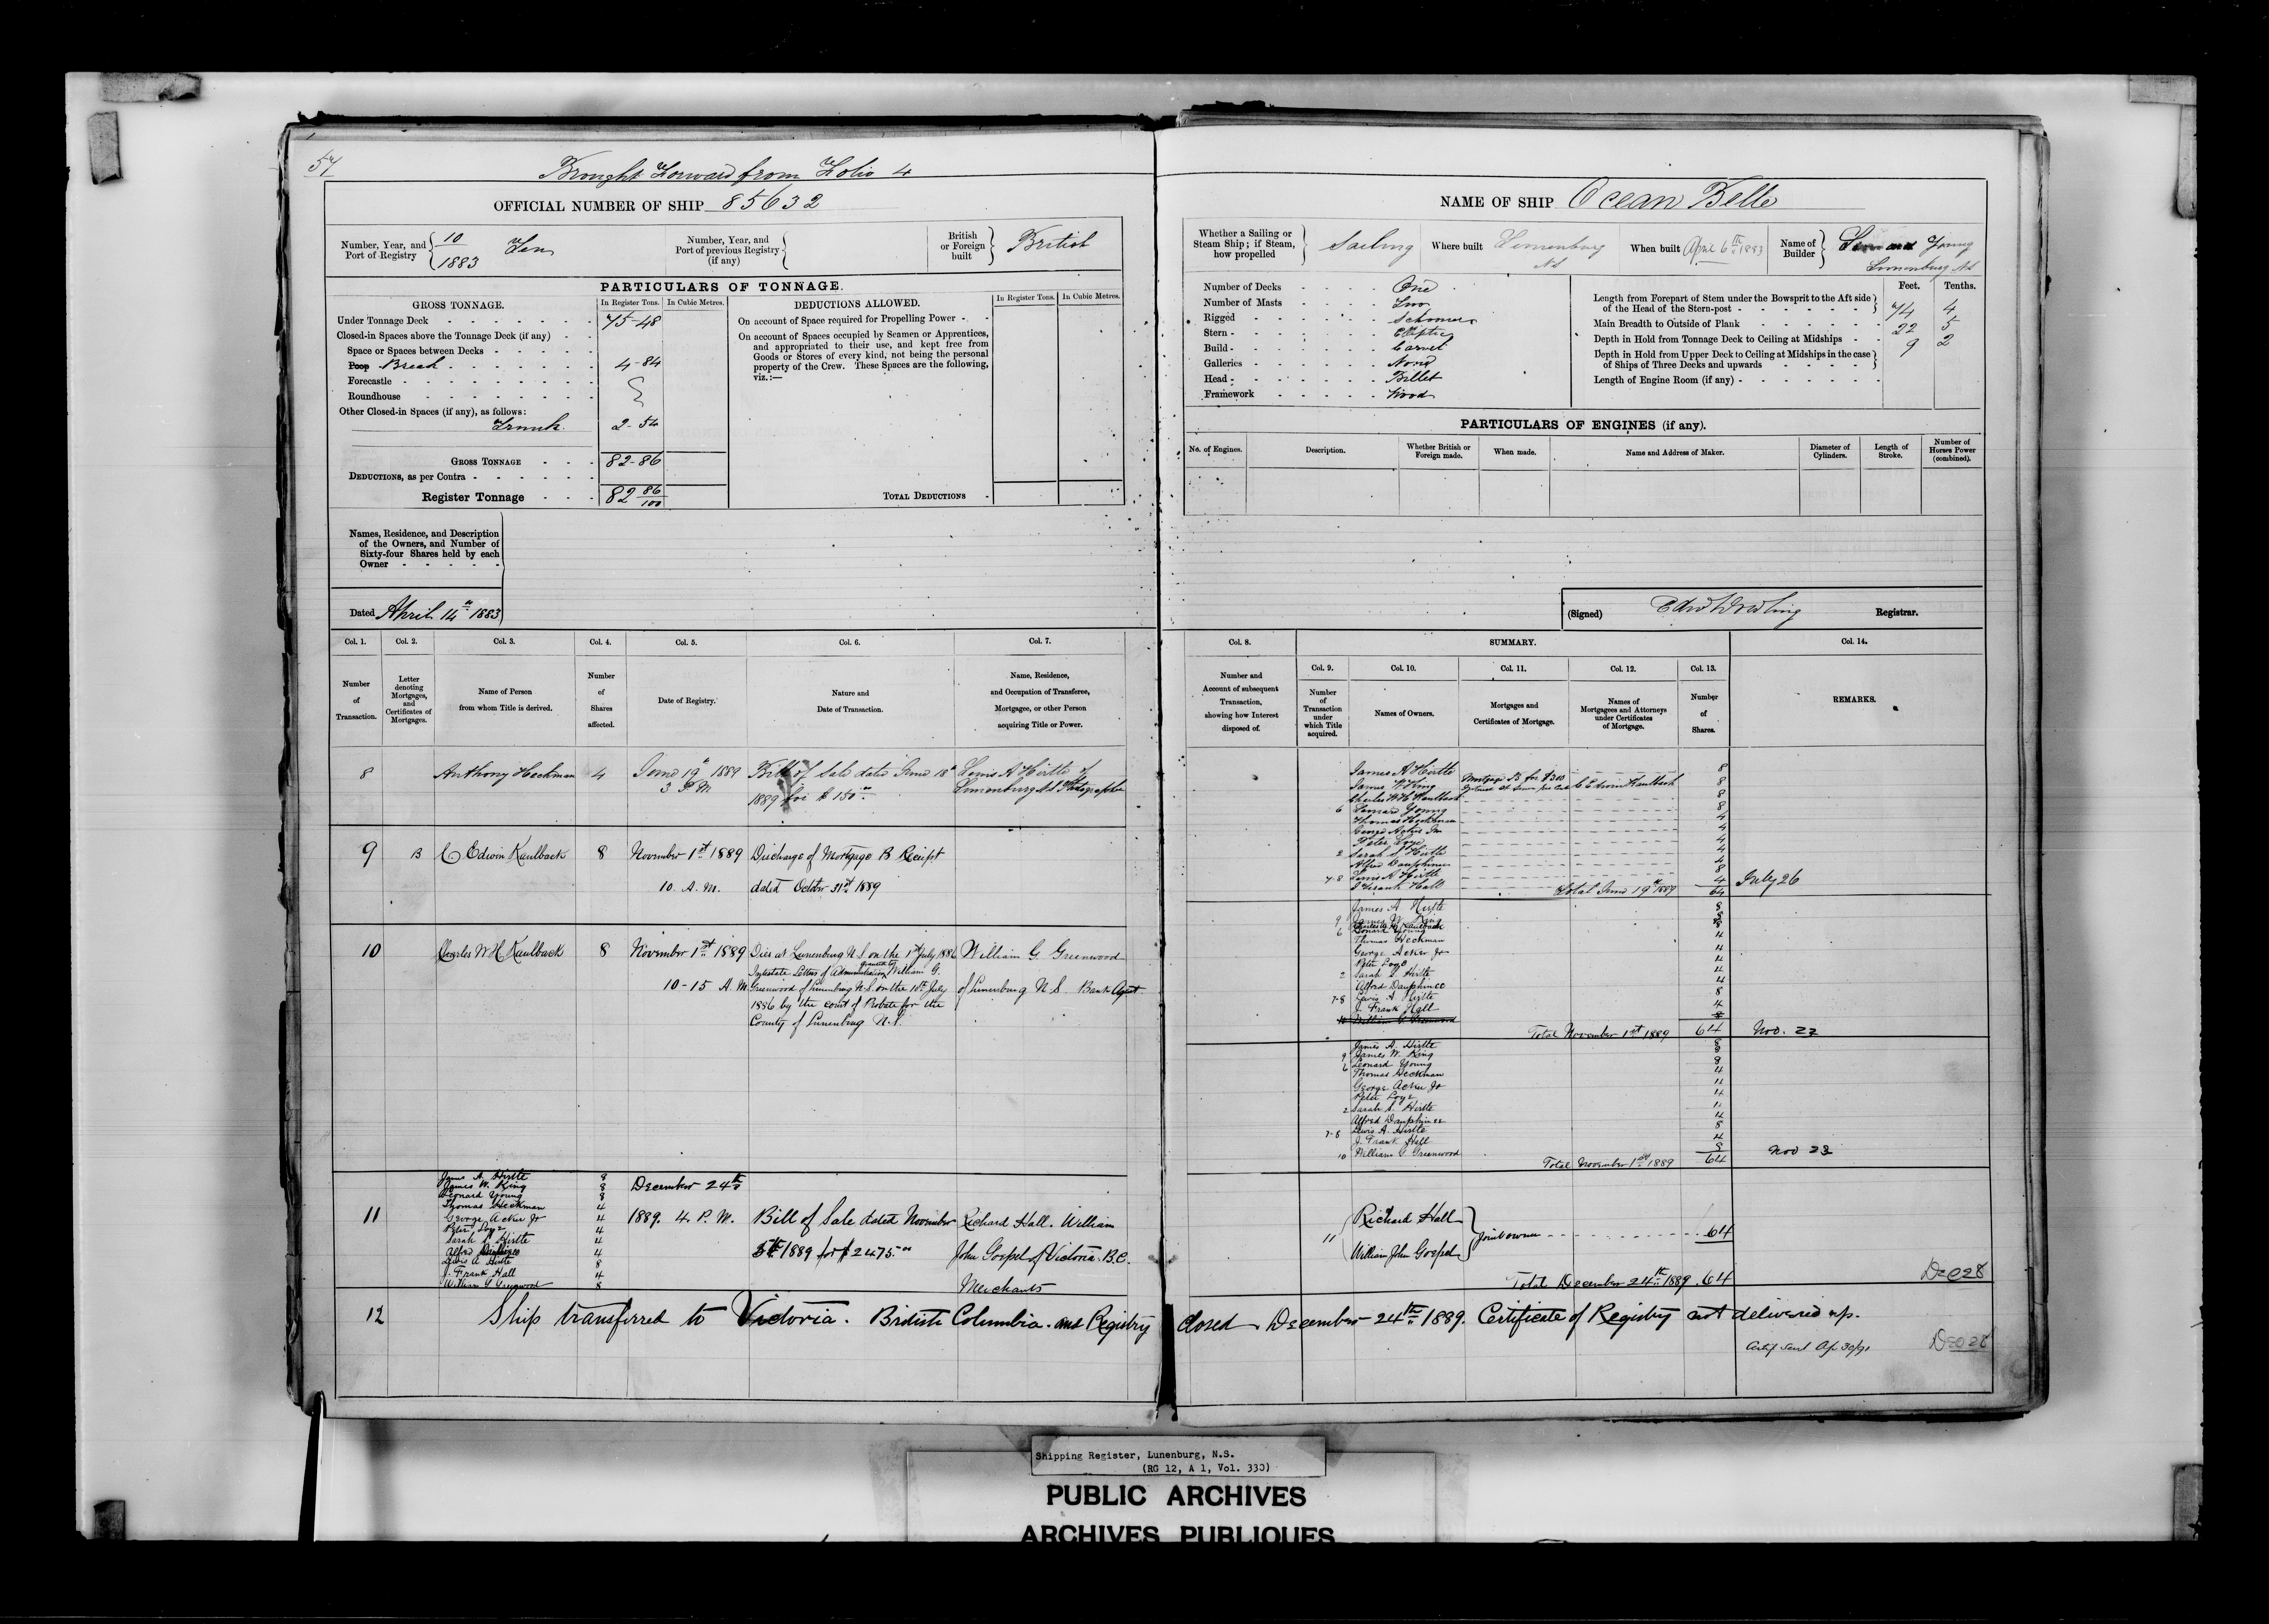 57
Brought Forward from Folio 4
OFFICIAL NUMBER OF SHIP 85632
Number, Year, and Port of Registry
10
1883
Ten
Number, Year, and Port of previous Registry (if any)
British or Foreign built
British
PARTICULARS OF TONNAGE.
GROSS TONNAGE.
In Register Tons.
In Cubic Metres.
DEDUCTIONS ALLOWED.
In Register Tons.
In Cubic Metres.
Under Tonnage Deck 75-48
Closed-in Spaces above the Tonnage Deck (if any)
Space or Spaces between Decks
Poop Break 4-84
Forecastle
Roundhouse
Other Closed-in Spaces (if any), as follows:
Trunk 2-54
GROSS TONNAGE 82-86
DEDUCTIONS, as per Contra
Register Tonnage 82 86/100
On account of Space required for Propelling Power
On account of Spaces occupied by Seamen or Apprentices,
and appropriated to their use, and kept free from
Goods or Stores of every kind, not being the personal
property of the Crew. These Spaces are the following,
viz.:—
TOTAL DEDUCTIONS
Names, Residence, and Description
of the Owners, and Number of
Sixty-four Shares held by each
Owner
Dated April 14th 1883
NAME OF SHIP Ocean Belle
Whether a Sailing or Steam Ship; if Steam, how propelled
Sailing
Where built Lunenburg NS
When built April 6th 1883
Name of Builder
Young
Lunenburg NS
Number of Decks One
Number of Masts Two
Rigged Schooner
Stern Elliptic
Build Carvel
Galleries None
Head Billet
Framework Wood
Feet. Tenths.
Length from Forepart of Stem under the Bowsprit to the Aft side
of the Head of the Stern-post 74 4
Main Breadth to Outside of Plank 22 5
Depth in Hold from Tonnage Deck to Ceiling at Midships 9 2
Depth in Hold from Upper Deck to Ceiling at Midships in the case
of Ships of Three Decks and upwards
Length of Engine Room (if any)
PARTICULARS OF ENGINES (if any).
No. of Engines.
Description.
Whether British or Foreign made.
When made.
Name and Address of Maker.
Diameter of Cylinders.
Length of Stroke.
Number of Horses Power (combined).
(Signed)
Registrar.
Col. 1. Col. 2. Col. 3. Col. 4. Col. 5. Col. 6. Col. 7.
Number of Transaction.
Letter denoting Mortgages, and Certificates of Mortgages.
Name of Person from whom Title is derived.
Number of Shares affected.
Date of Registry.
Nature and Date of Transaction.
Name, Residence, and Occupation of Transferee, Mortgagee, or other Person acquiring Title or Power.
8 Anthony Heckman 4 June 19th 1889 Bill of Sale dated June 18th Lewis A Hirtle of
3 P.M 1889 for $150 Lunenburg NS Photographer
9 B C Edwin Kaulback 8 November 1st 1889 Discharge of Mortgage B Receipt
10. A. M. dated October 31st 1889
10 Charles W H Kaulback 8 November 1st 1889 Died at Lunenburg N.S on the 1st July 1886 William G Greenwood
Intestate Letters of Administration granted to William G.
10-15 A. M. Greenwood of Lunenburg N.S. on the 10th July of Lunenburg N S Bank Agent
1886 by the Court of Probate for the
County of Lunenburg N.S.
James A. Hirtle 8
James W. King 8
Leonard Young 8
Thomas Heckman 4
George Acker Jr 4
Peter Loye 4
Sarah S. Hirtle 4
Alfred Dauphinee 4
Lewis A Hirtle 8
J. Frank Hall 4
William G Greenwood 8
11 December 24th
1889. 4. P. M. Bill of Sale dated November Richard Hall. William
5th 1889 for $2475.00 John Gospel of Victoria. B.C.
Merchants
12 Ship transferred to Victoria. British Columbia. and Registry closed December 24th 1889. Certificate of Registry not delivered up.
Col. 8.
Number and Account of subsequent Transaction, showing how Interest disposed of.
SUMMARY.
Col. 9. Col. 10. Col. 11. Col. 12. Col. 13.
Number of Transaction under which Title acquired.
Names of Owners.
Mortgages and Certificates of Mortgage.
Names of Mortgagees and Attorneys under Certificates of Mortgage.
Number of Shares.
Col. 14.
REMARKS.
James A Hirtle 8
James W King Mortgage B for $300 C Edwin Kaulback 8
Charles W H Kaulback 8
6 Leonard Young 8
Thomas Heckman 4
George Acker Jr 4
Peter Loye 4
2 Sarah S Hirtle 4
Alfred Dauphinee 4
7-8 Lewis A Hirtle 8
J Frank Hall 4
Total June 19th 1889 64 July 26
James A Hirtle 8
9 James W. King 8
Charles W H Kaulback 8
6 Leonard Young
Thomas Heckman 4
George Acker Jr 4
Peter Loye 4
2 Sarah S. Hirtle 4
Alfred Dauphinee 4
7-8 Lewis A Hirtle 8
J. Frank Hall 4
10 William G Greenwood 8
Total November 1st 1889 64 Nov. 22
James A. Hirtle 8
9 James W. King 8
6 Leonard Young 8
Thomas Heckman 4
George Acker Jr 4
Peter Loye 4
2 Sarah S. Hirtle 4
Alfred Dauphinee 4
7-8 Lewis A. Hirtle 8
J. Frank Hall 4
10 William G. Greenwood 8
Total November 1st 1889 64 Nov 23
11 Richard Hall
William John Gospel
Joint owners 64
Total December 24th 1889. 64 Dec 28
Certif sent Ap 30/91 Dec 28
Shipping Register, Lunenburg, N.S.
(RG 12, A 1, Vol. 330)
PUBLIC ARCHIVES
ARCHIVES PUBLIQUES